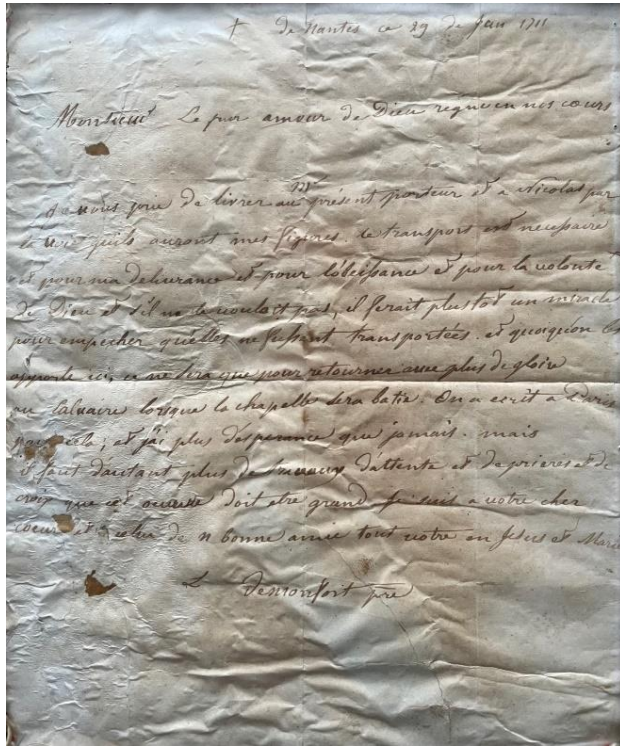 † De Nantes ce 29 de Jan 1711
Monsieur Le pur amour de Dieu regne en nos cœurs
Je vous prie de livrer au present porteur et a Nicolas par
qu'ils auront mes figures. le transport est necessaire
et pour ma delivrance et pour l'obeissance et pour la volonte
de Dieu et s'il ne le vouloit pas, il ferait plustot un miracle
pour empecher qu'elles ne fussent transportées. et quoiqu'on les
apporte ici, ce ne sera que pour retourner avec plus de gloire
au Calvaire lorsque la chapelle sera batie. On a ecrit a Paris
pour cela; et j'ai plus d'esperance que jamais. mais
il faut d'autant plus de d'attente et de prieres et de
croix que cet doit etre grand je suis a votre cher
cœur et a celui de n bonne amie tout votre en Jesus et Marie
L Demonfort pre